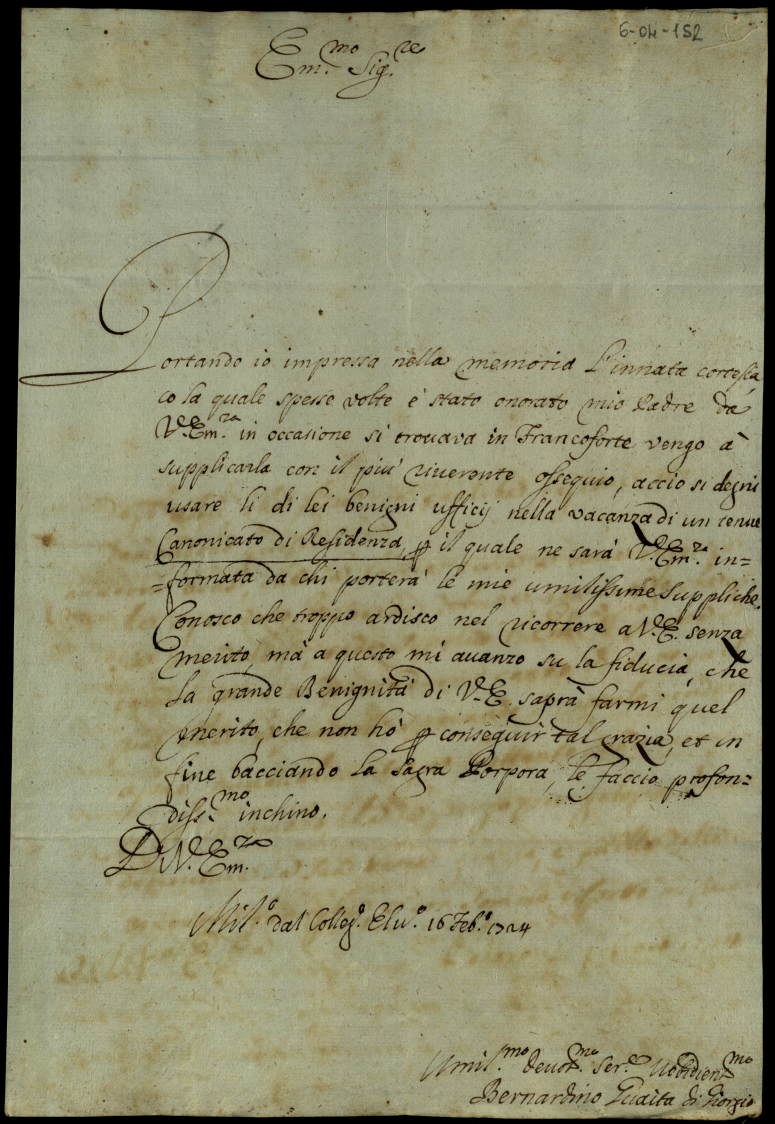 6-04-152
Em.mo Sig.re
Portando io impressa nella memoria l'innata cortesia,
co la quale spesse volte è stato onorato mio Padre da
V. Em.za in occasione si trouava in Francoforte vengo à
supplicarla con il più riuerente ossequio, accio si degni
usare li di lei benigni ufficij nella vacanza di un tenue
Canonicato di Residenza, p il quale ne sarà V. Em.za in=
=formata da chi porterà le mie umilissime suppliche.
Conosco che troppo ardisco nel ricorrere a V. E. senza
merito, mà a questo mi auanzo su la fiducia, che
la grande Benignità di V. E. saprà farmi quel
merito, che non hò p conseguir tal grazia, et in
fine bacciando la Sagra Porpora, le faccio profon=
diss.mo inchino.
D V. Em.za
Mil.o dal Colleg.o Elv.o 16 Feb.o 1724
Umil.mo deuot.mo Ser.e Vbbidient.mo
Bernardino Guaita di Giorgio